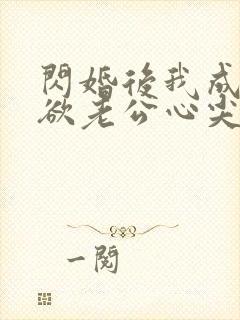 閃婚後我成
欲老公心尖
一閱